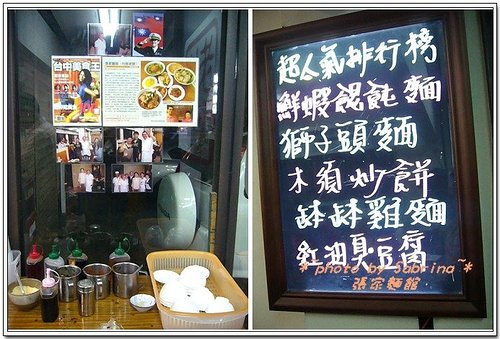 台中美食王
超人氣排行榜
鮮蝦餛飩麵
獅子頭麵
木須炒餅
缽缽雞麵
紅油臭豆腐
* photo by Sabrina~*
張家麵館